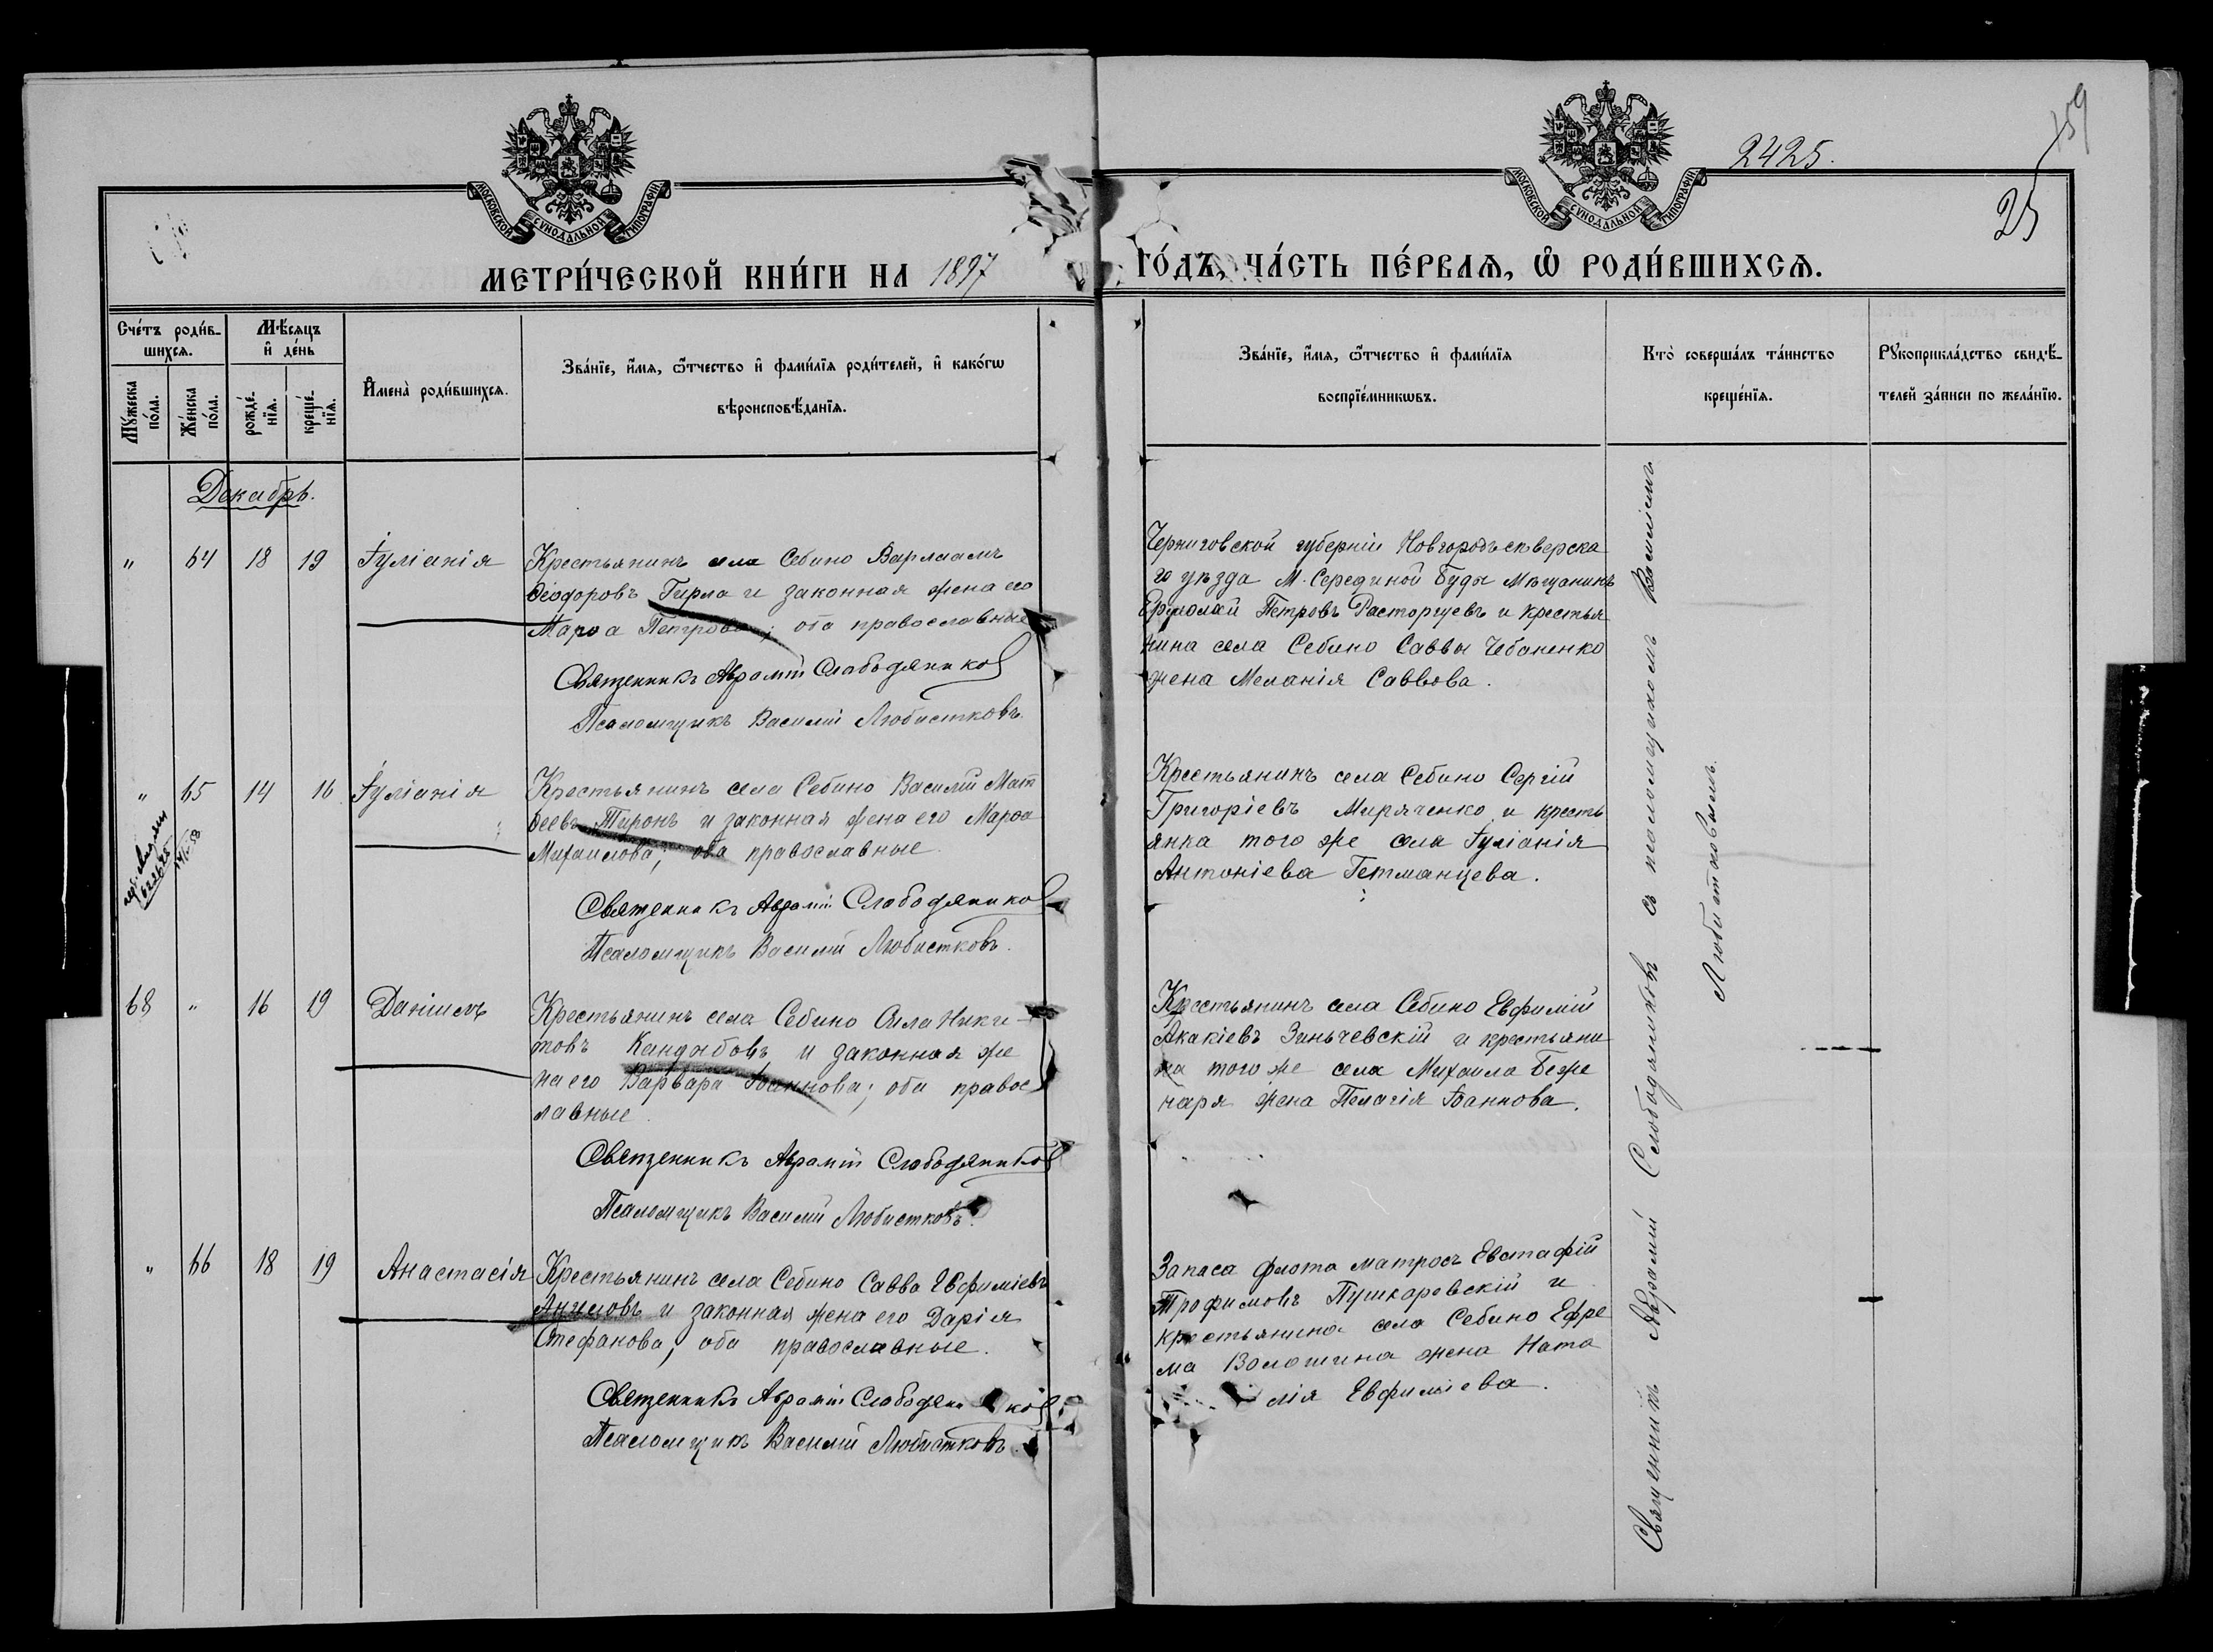 МОСКОВСКОЙ СУНОДАЛЬНОЙ ТИПОГРАФІИ
МОСКОВСКОЙ СУНОДАЛЬНОЙ ТИПОГРАФІИ
2425.
159
25
МЕТРИ́ЧЕСКОЙ КНИ́ГИ НА 1897 ГО́ДЪ, ЧА́СТЬ ПЕ́РВАѦ, Ѡ҆ РОДИ́ВШИХСѦ.
Сче́тъ роди́в-
шихсѧ.
Мѣ́сѧцъ
и҆ де́нь
Мꙋ́жеска
по́ла.
Же́нска
по́ла.
рожде́-
нїѧ.
креще́-
нїѧ.
И҆мена̀ роди́вшихсѧ.
Зва́нїе, и҆́мѧ, ѻ҆́тчество и҆ фами́лїѧ роди́телей, и҆ како́гѡ
вѣроисповѣ́данїѧ.
Зва́нїе, и҆́мѧ, ѻ҆́тчество и҆ фами́лїѧ
воспрїе́мникѡвъ.
Кто̀ соверша́лъ та́инство
креще́нїѧ.
Рꙋкоприкла́дство свидѣ́-
телей за́писи по жела́нїю.
Декабрь.
" 64 18 19 Іуліанія
Крестьянинъ села Себино Варлаамъ
Ѳеодоровъ Гирла и законная жена его
Марѳа Петрова; оба православные
Священникъ Аврамій Слободяников
Псаломщикъ Василій Любистковъ.
Черниговской губерніи Новгородъсѣверска
го уѣзда М. Серединой Буды Мѣщанинъ
Ермолай Петровъ Расторгуевъ и крестья
нина села Себино Саввы Чебаненко
жена Меланія Саввова.
" 65 14 16 Іуліанія
Крестьянинъ села Себино Василій Мат
ѳеевъ Тиронъ и законная жена его Марѳа
Михаилова; оба православные
Священникъ Аврамій Слободяников
Псаломщикъ Василій Любистковъ.
Крестьянинъ села Себино Сергій
Григоріевъ Миряченко и кресть
янка того же села Іуліанія
Антоніева Гетманцева.
68 " 16 19 Даніилъ
Крестьянинъ села Себино Сила Ники-
товъ Кандыбовъ и законная же
на его Варвара Іоаннова; оба правос
лавные.
Священникъ Аврамій Слободяников
Псаломщикъ Василій Любистковъ.
Крестьянинъ села Себино Евфимій
Акакіевъ Зиньчевскій и крестьяни
на того же села Михаила Беже
наря жена Пелагія Іоаннова.
" 66 18 19 Анастасія
Крестьянинъ села Себино Савва Евфиміевъ
Ангеловъ и законная жена его Дарія
Стефанова, оба православные.
Священникъ Аврамій Слободяников
Псаломщикъ Василій Любистковъ.
Запаса флота матросъ Евстафій
Трофимовъ Пушкаревскій и
крестьянина села Себино Ефре
ма Волошина жена Ната
лія Евфиміева.
Священникъ Аврамій Слободяниковъ съ псаломщикомъ Василіемъ
Любистковымъ.